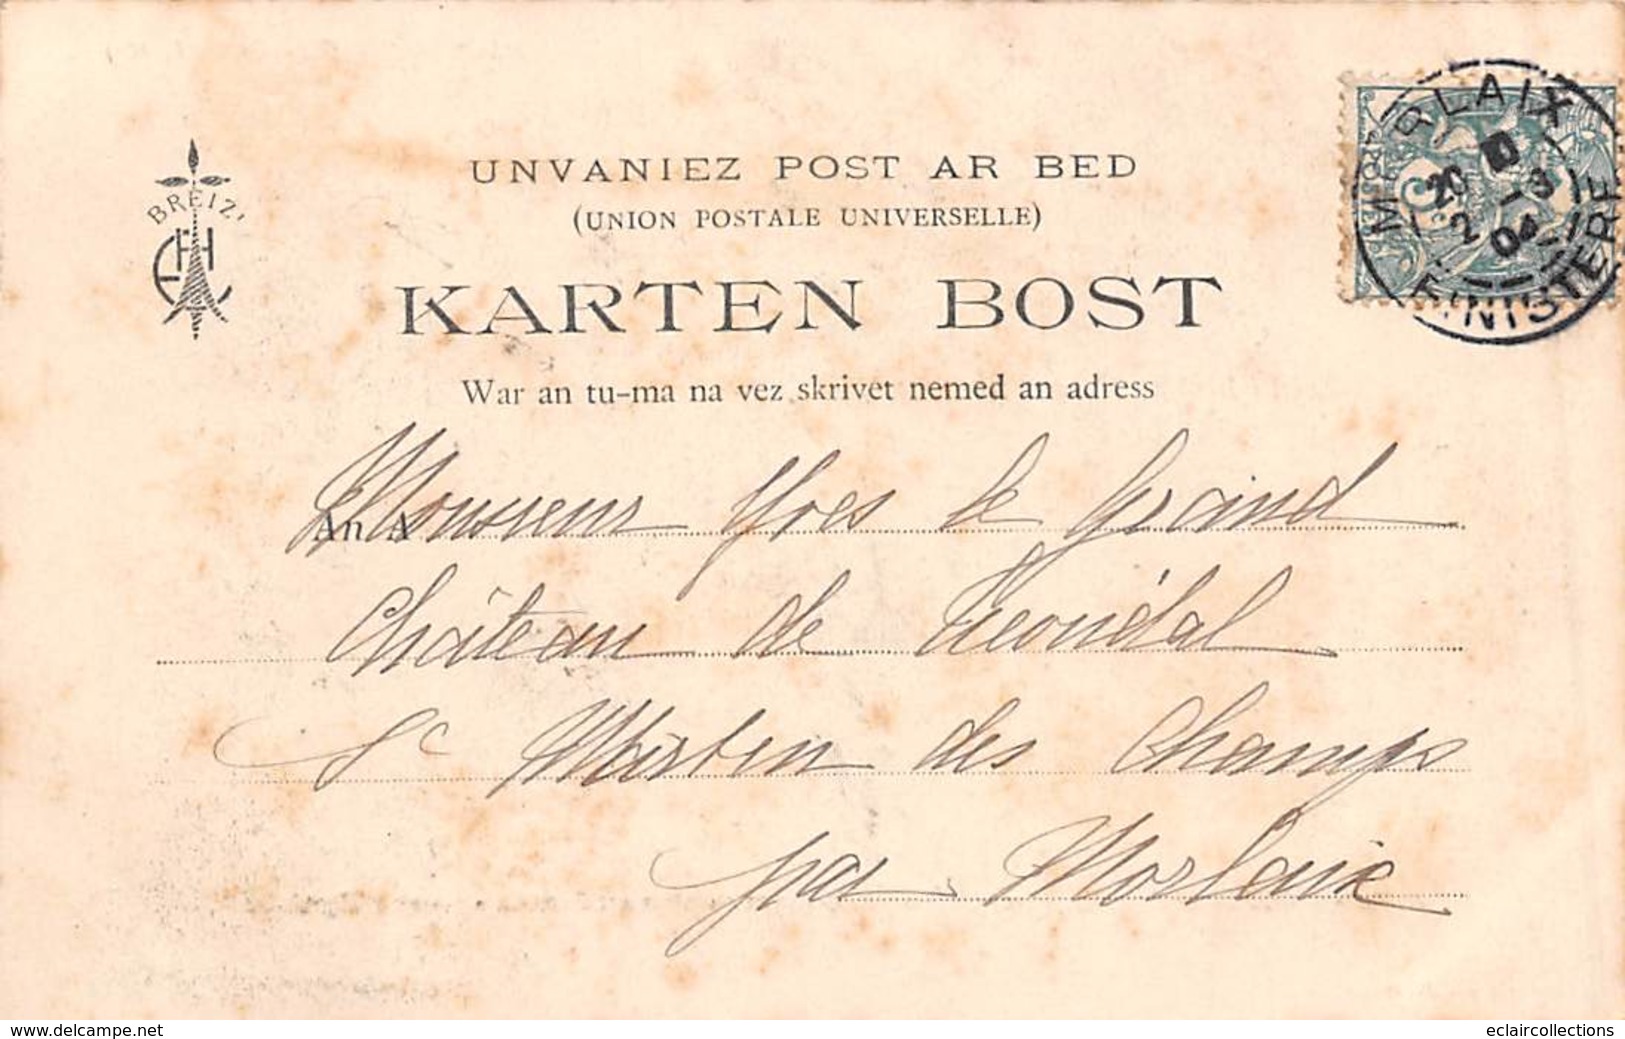 UNVANIEZ POST AR BED
(UNION POSTALE UNIVERSELLE)
BREIZ
KARTEN BOST
War an tu-ma na vez skrivet nemed an adress
MORLAIX
20
2 -3
04
FINISTERE
An A
Monsieur Yves le Grand
Château de
St Martin des Champs
par Morlaix
www.delcampe.net
eclaircollections